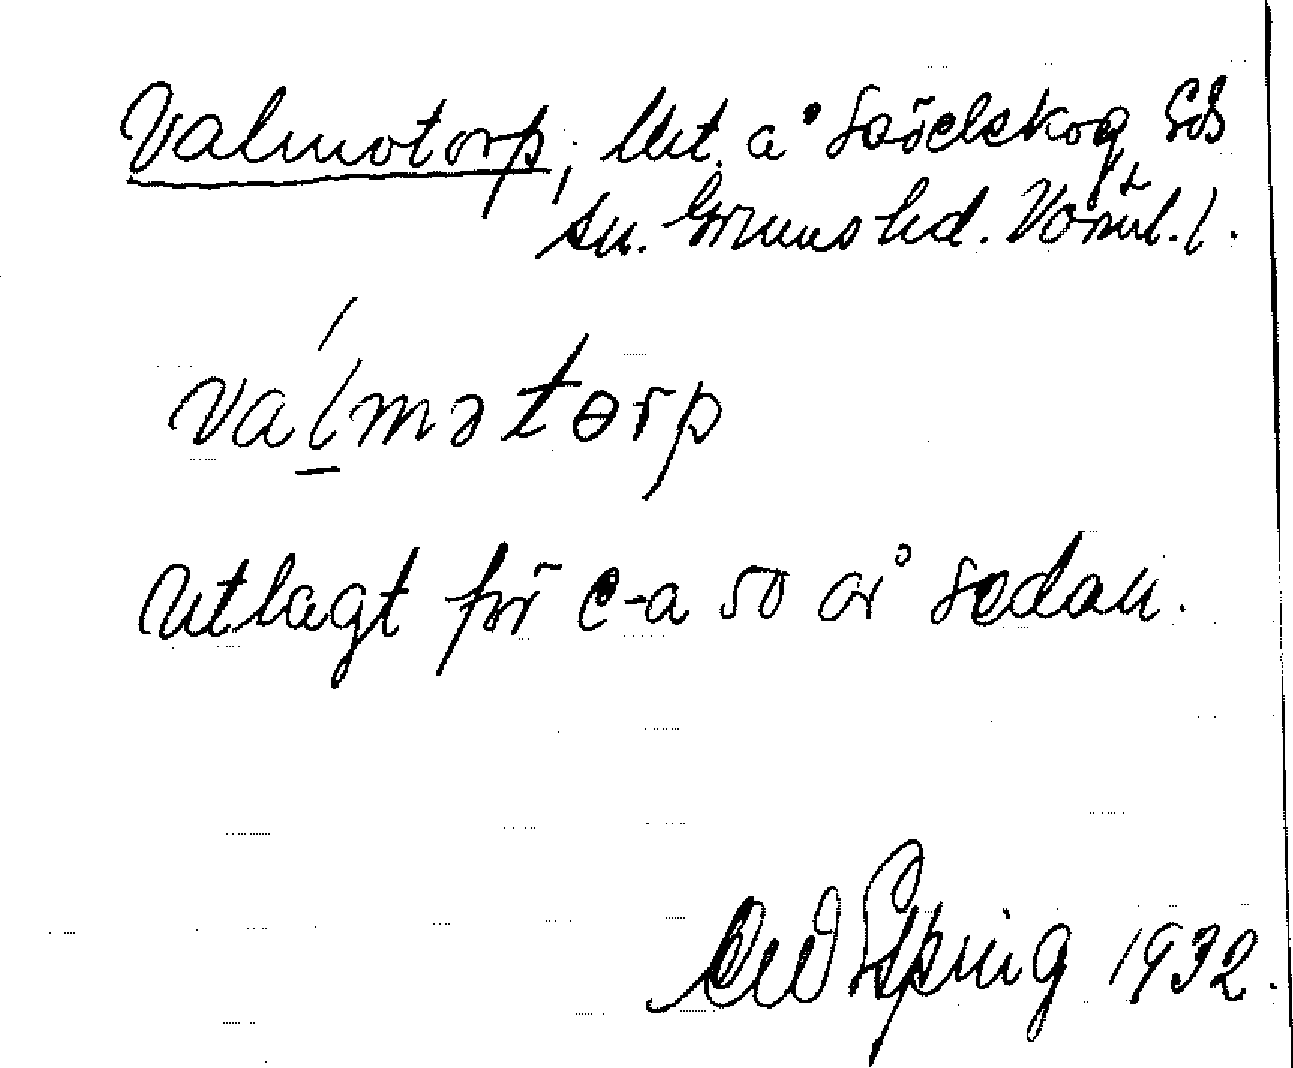 Valmotorp, lht. a° Sadelskog, Eds
sn. Grums hd. Värml. l.
valmətɵrp
Utlagt för c-a 50 år sedan.
Spring 1932.